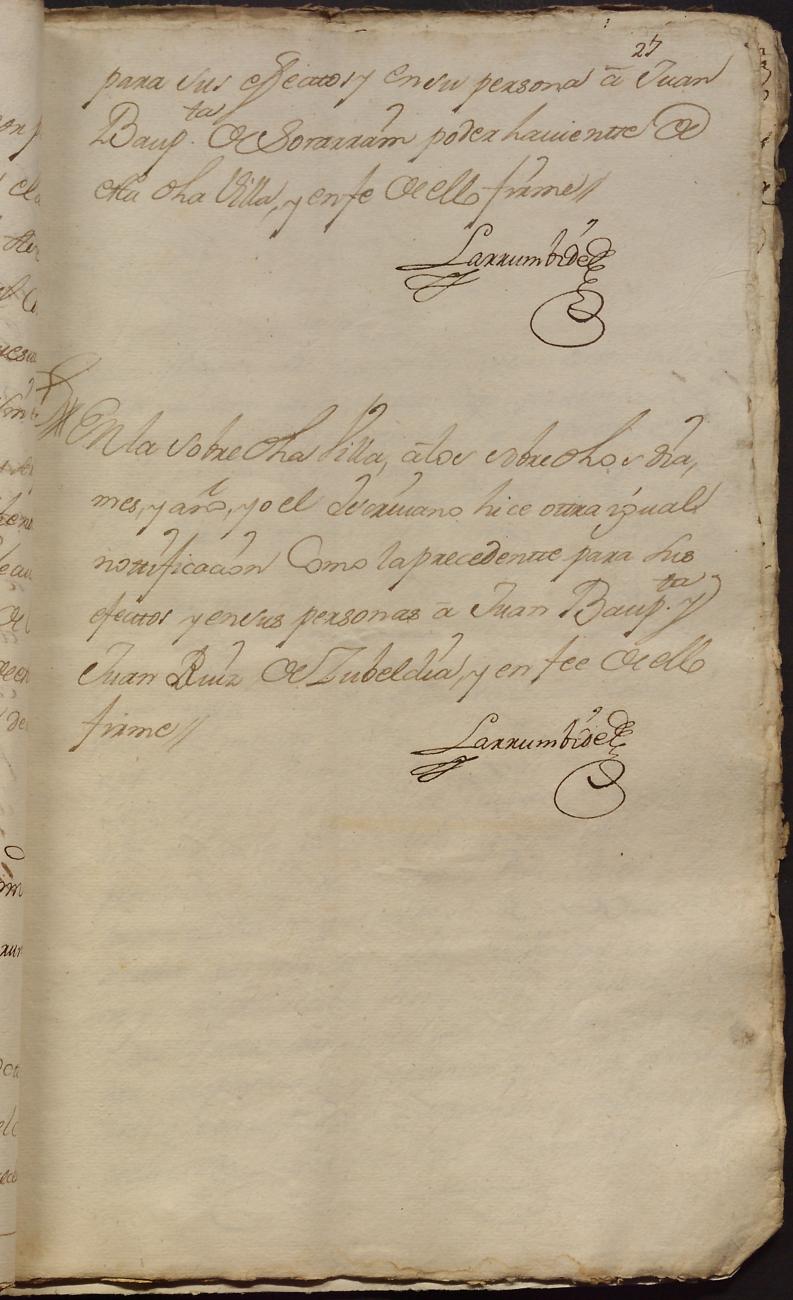 27
para sus effectos y en su persona â Juan
Baup.ta de Sorarrain poder haviente de
esta dha Villa, y en fe de ello firme//
Larrumbide
En la sobre dha Villa, â los sobre dhos dia,
mes, y año, yo el Escrivano hice otra igual
notificacion Como la precedente para sus
efectos y en sus personas â Juan Baup.ta y
Juan Ruiz de Zubeldia, y en fee de ello
firme//
Larrumbide